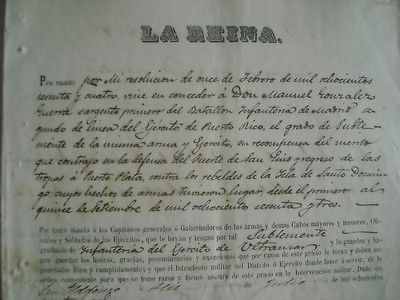 LA REINA.
Por cuanto por Mi resolucion de once de Febrero de mil ochocientos
sesenta y cuatro, vine en conceder á Don Manuel Gonzalez
Guerra sargento primero del Batallon Infanteria de Madrid
gundo de linea del Ejército de Puerto Rico, el grado de Subte-
niente de la misma arma y Ejercito, en recompensa del merito
que contrajo en la defensa del fuerte de San Luis y regreso de las
tropas á Puerto Plata, contra los rebeldes de la Isla de Santo Domin-
go, cuyos hechos de armas tuvieron lugar, desde el primero al
quince de Setiembre de mil ochocientos sesenta y tres.
Por tanto mando á los Capitanes generales ó Gobernadores de las armas y demas Cabos mayores y menores, Ofi-
ciales y Soldados de Mis Ejércitos, que os hayan y tengan por tal Subteniente
graduado de Infanteria del Ejercito de Ultramar y os guarden y ha-
gan guardar las honras, gracias, preeminencias y exenciones que por razon de este grado le tocan y deben ser
guardadas bien y cumplidamente; y que el Intendente militar del Distrito ó Ejército donde fuere á servir, dé la
orden conveniente para que se tome razon y forme asiento de este grado en la Intervencion militar. Dado en
San Ildefonso Julio